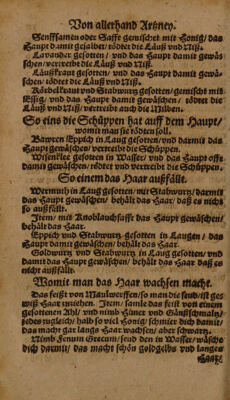 Von allerhand Artzney.
Senffsamen oder Saffe gemischet mit Honig/ das
Haupt damit gesalbet/ tödtet die Läuß und Niß.
Lavander gesotten/ und das Haupt damit gewä-
schen/ vertreibt die Läuß und Niß.
Läußkraut gesotten/ und das Haupt damit gewä-
schen/ tödtet die Läuß und Niß.
Körbelkraut und Stabwurtz gesotten/ gemischt mit
Essig/ und das Haupt damit gewäschen/ tödtet die
Läuß und Niß/ vertreibt auch die Milben.
So eins die Schüppen hat auff dem Haupt/
womit man sie tödten soll.
Bawren Eppich in Laug gesotten/ und darmit das
Haupt gewäschen/ vertreibt die Schüppen.
Wisenklee gesotten in Wasser/ und das Haupt offt
damit gewäschen/ tödtet und vertreibt die Schüppen.
So einem das Haar außfällt.
Wermuth in Laug gesotten/ mit Stabwurtz/ darmit
das Haupt gewäschen/ behält das Haar/ daß es nicht
so außfällt.
Item/ mit Knoblauchsafft das Haupt gewäschen/
behält das Haar.
Eppich und Stabwurtz gesotten in Laugen/ das
Haupt damit gewäschen/ behält das Haar.
Goldwurtz und Stabwurtz in Laug gesotten/ und
damit das Haupt gewäschen/ behält das Haar/ daß es
nicht außfällt.
Womit man das Haar wachsen macht.
Das feißt von Maulwerffen/ so man die seud/ ist ges
weiß Haar ziehen. Item/ samle das feißt von einem
gesottenen Ahl/ und nimb Hüner und Gänßschmaltz/
jedes zugleich/ halb so viel Honig/ schmier dich damit/
das macht gar langs Haar wachsen/ aber schwartz.
Nimb Fenum Grecum/ seud den in Wasser/ wäsche
dich darmit/ das macht schön goldgelbs und langes
Haar/